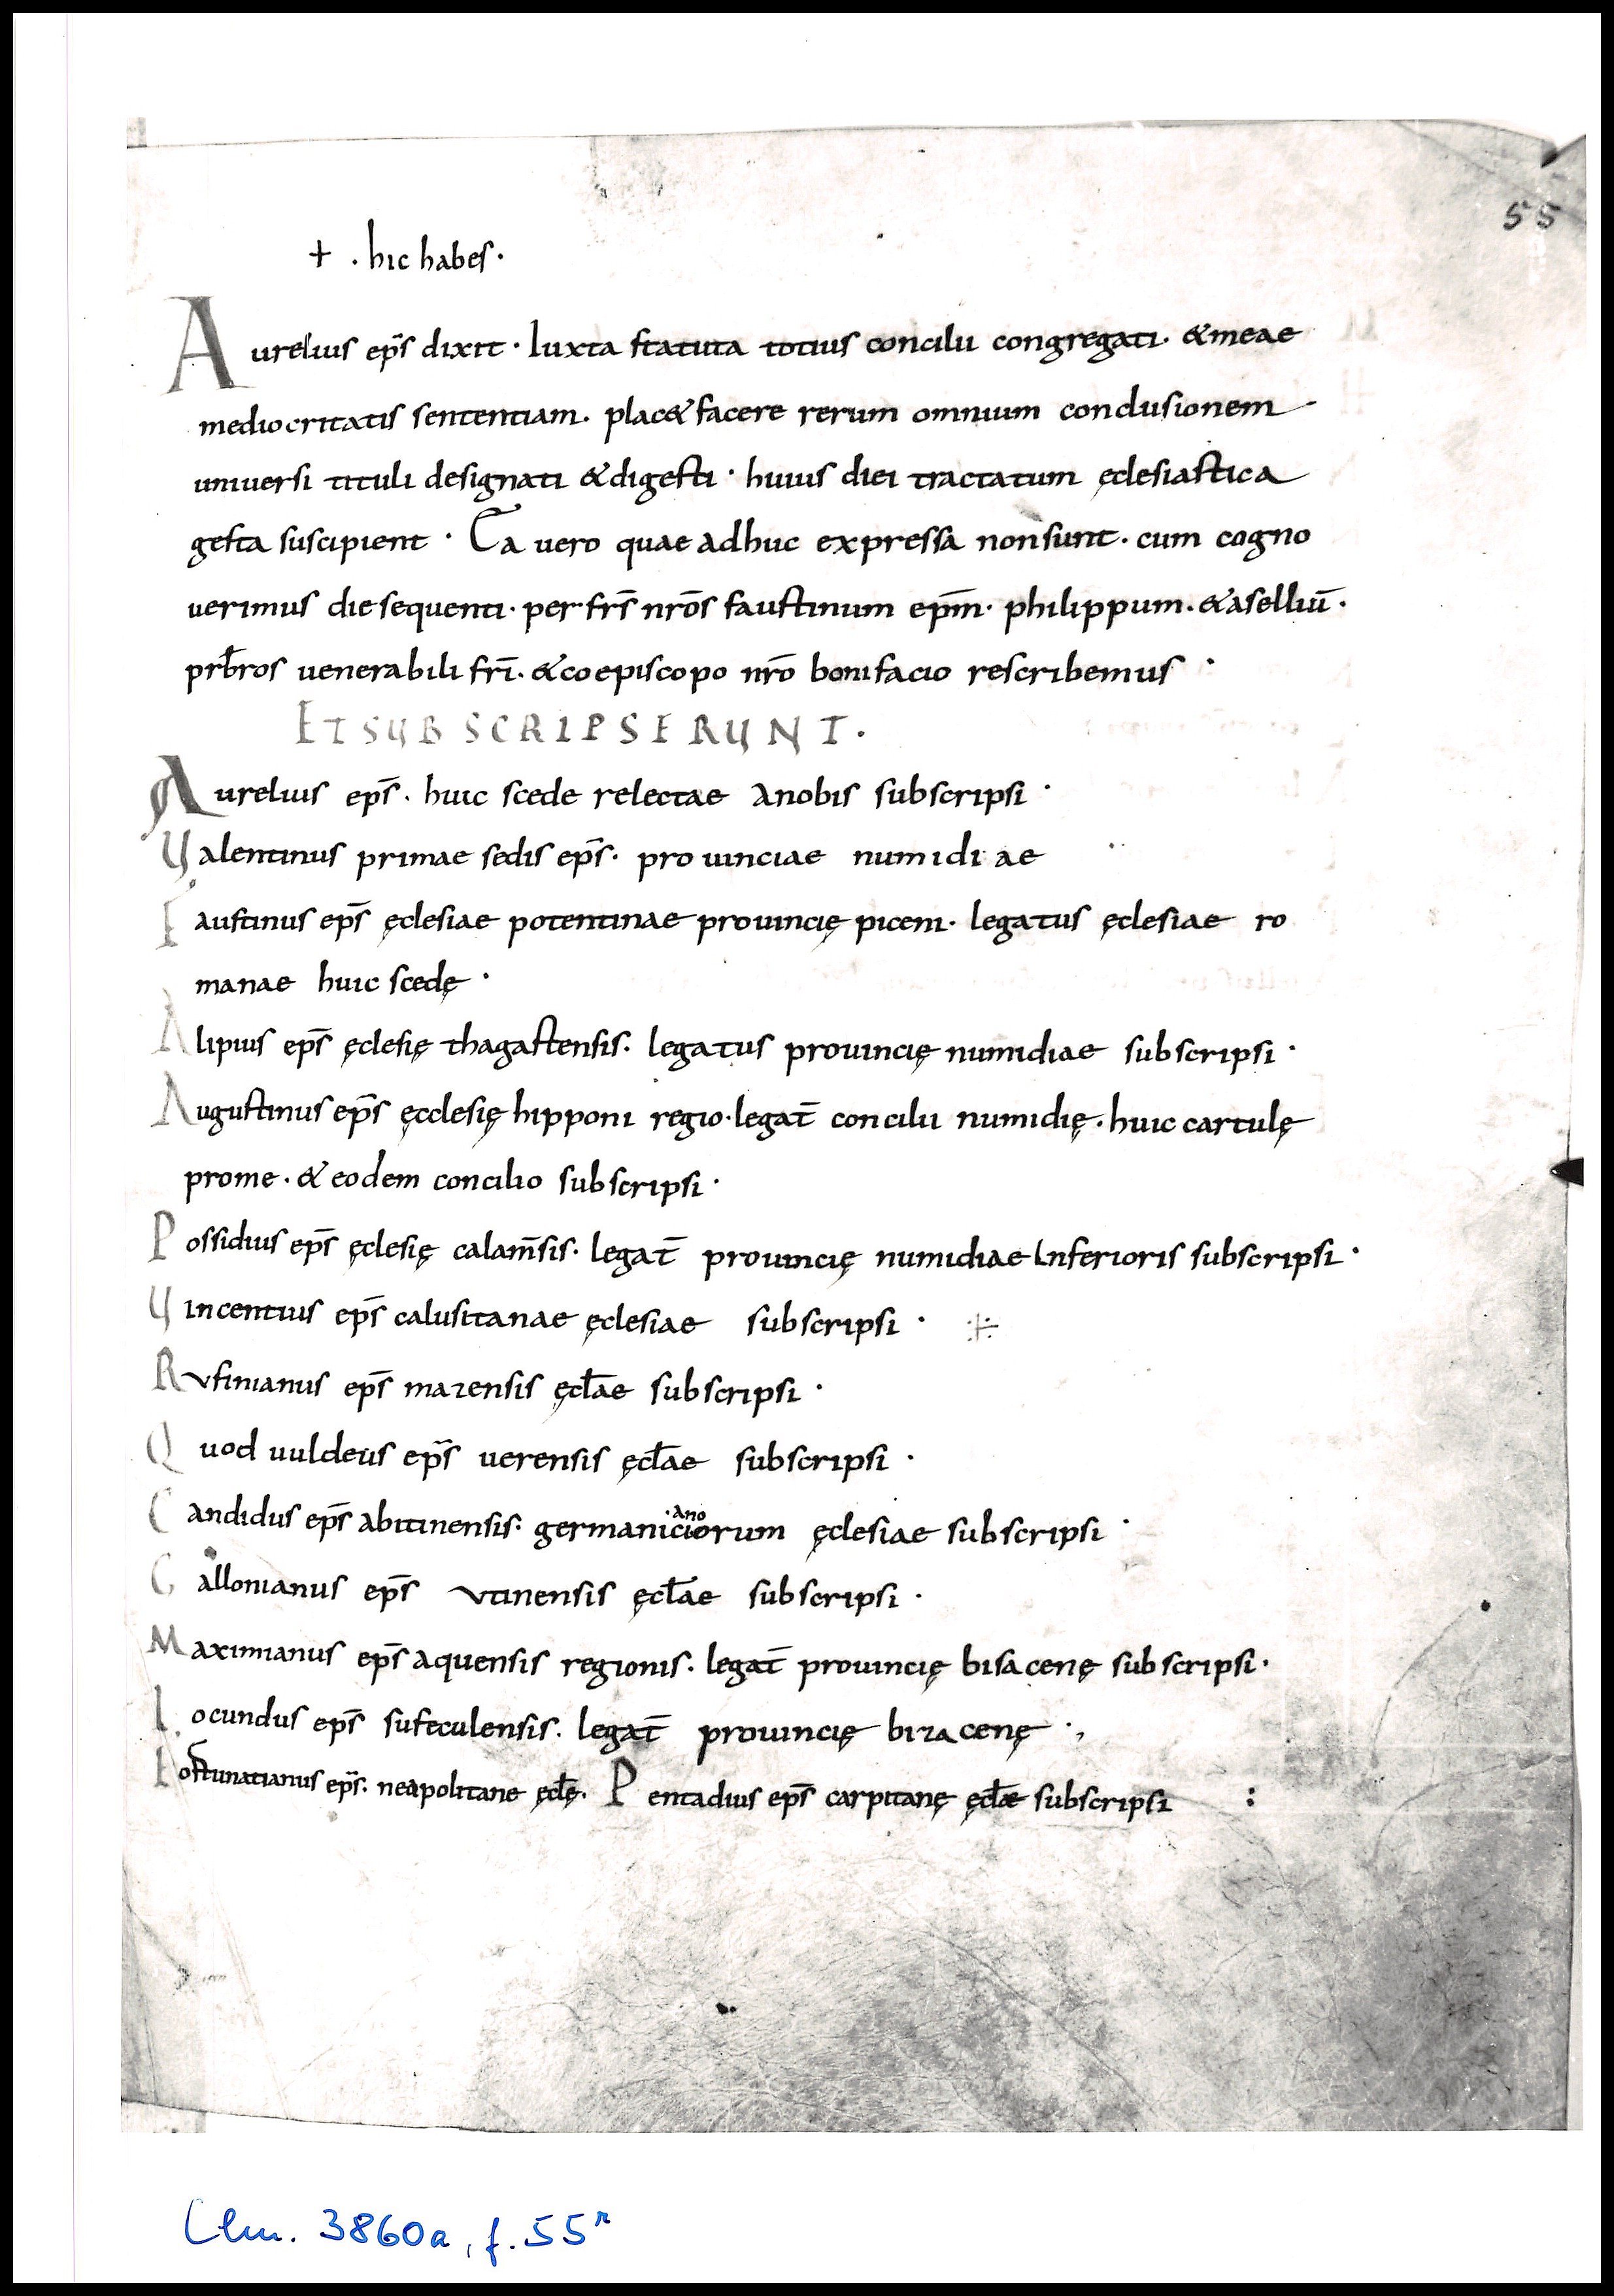 55
+ · hic habes ·
Aurelius ep̄s dixit · Iuxta statuta totius concilii congregati · & meae
mediocritatis sententiam · plac& facere rerum omnium conclusionem ·
universi tituli designati & digesti · huius diei tractatum ęclesiastica
gesta suscipient · Ea vero quae adhuc expressa non sunt · cum cogno
verimus die sequenti · per frs̄ nrōs faustinum ep̄m · philippum · & aselliū ·
prb̄ros venerabili frī · & coepiscopo nrō bonifacio rescribemus ·
ET SUBSCRIPSERUNT ·
Aurelius ep̄s · huic scede relectae a nobis subscripsi ·
Valentinus primae sedis ep̄s · provinciae numidiae
Faustinus ep̄s ęclesiae potentinae provincię piceni · legatus ęclesiae ro
manae huic scedę ·
Alipius ep̄s ęclesię thagastensis · legatus provincię numidiae subscripsi ·
Augustinus ep̄s ęcclesię hipponi regio · legat̄ concilii numidię · huic cartulę
prome · & eodem concilio subscripsi ·
Possidius ep̄s ęclesię calam̄sis · legat̄ provincię numidiae Inferioris subscripsi ·
Vincentius ep̄s calusitanae ęclesiae subscripsi · ÷
Rufinianus ep̄s mazensis ęcl̄ae subscripsi ·
Quod vuldeus ep̄s verensis ęcl̄ae subscripsi ·
ano
Candidus ep̄s abitinensis · germaniciorum ęclesiae subscripsi ·
Gallonianus ep̄s utinensis ęcl̄ae subscripsi ·
Maximianus ep̄s aquensis regionis · legat̄ provincię bisacenę subscripsi ·
Iocundus ep̄s sufeculensis · legat̄ provincię bizacenę ·,
Fortunatianus ep̄s · neapolitane ęcl̄ę · Pentadius ep̄s carpitanę ęcl̄æ subscripsi :
Clm. 3860a, f. 55ʳ